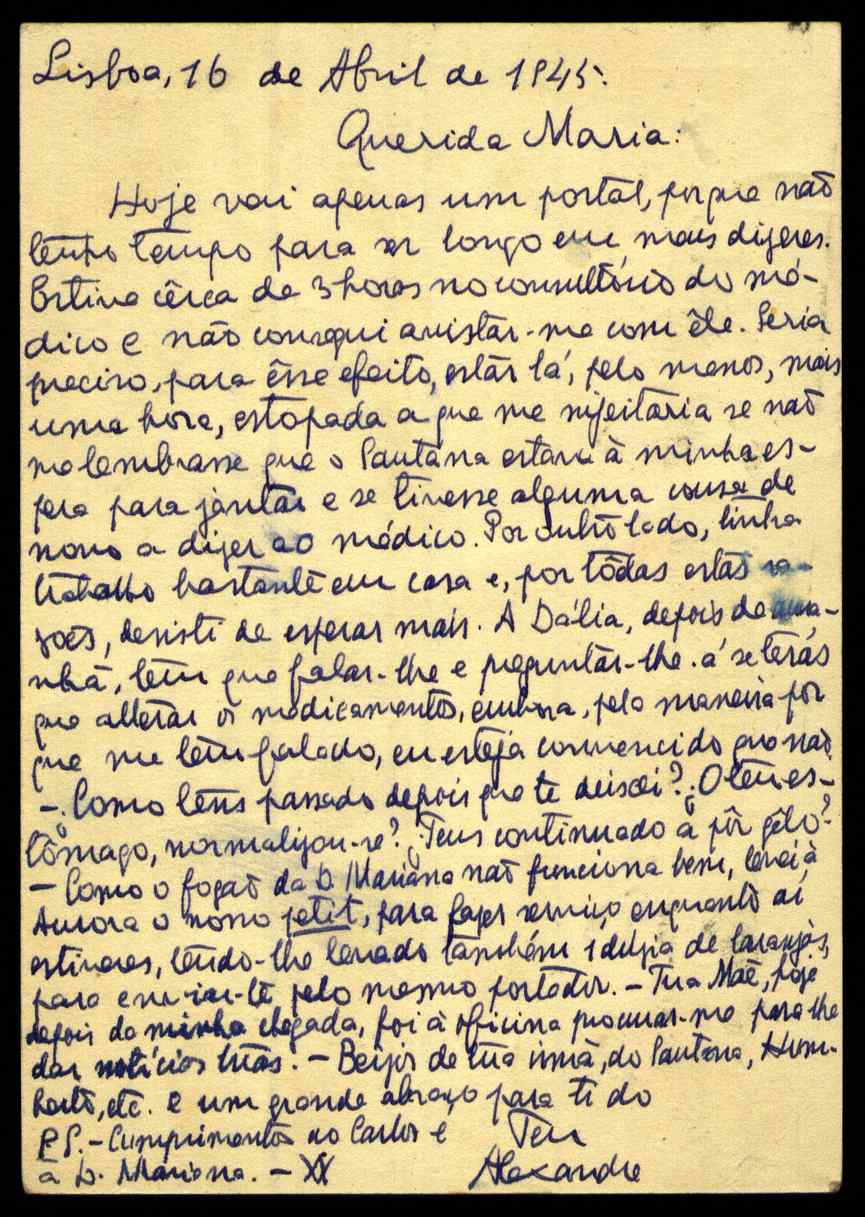 Lisboa, 16 de Abril de 1945.
Querida Maria:
Hoje vai apenas um postal, porque não
tenho tempo para ser longo em mais dizeres.
Estive cêrca de 3 horas no consultório do mé-
dico e não consegui avistar-me com êle. Seria
preciso, para êsse efeito, estar lá, pelo menos, mais
uma hora, estopada a que me sujeitaria se não
me lembrasse que o Santana estava à minha es-
pera para jantar e se tivesse alguma cousa de
novo a dizer ao médico. Por outro lado, tinha
trabalho bastante em casa e, por tôdas estas ra-
zões, desisti de esperar mais. A Dália, depois de ama-
nhã, tem que falar-lhe e preguntar-lhe-á se terás
que alterar os medicamentos, embora, pela maneira por
que me tem falado, eu esteja convencido que não.
-¿Como tens passado depois que te deixei? ¿O teu es-
tômago, normalizou-se? ¿Tens continuado a pôr gêlo?
- Como o fogão da D. Mariana não funciona bem, levei à
Aurora o nosso petit, para fazer serviço enquanto aí
estiveres, tendo-lhe levado também 1 dúzia de laranjas,
para enviar-te pelo mesmo portador. - Tua Mãe, hoje
depois da minha chegada, foi à oficina procurar-me para lhe
dar notícias tuas. - Beijos de tua irmã, do Santana, Hum-
berto, etc. e um grande abraço para ti do
P.S. - Cumprimentos ao Carlos e Teu
à D. Mariana. - XX Alexandre